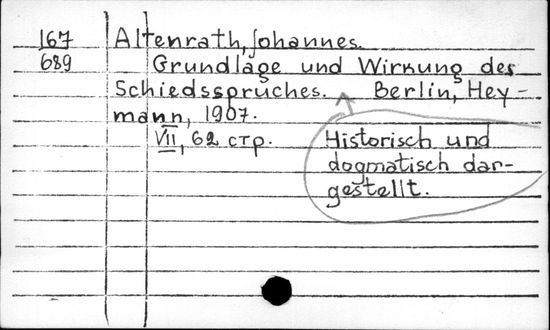 167
689
Altenrath, Johannes.
Grundlage und Wirkung des
Schiedsspruches. Berlin, Hey-
mann, 1907.
VII, 62 стр.
Historisch und
dogmatisch dar-
gestellt.